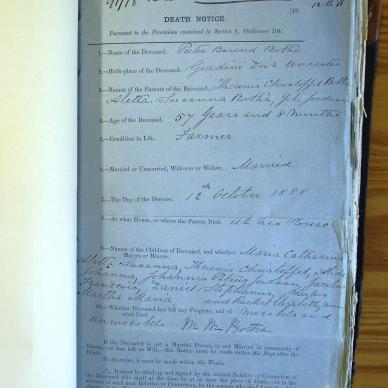 (43)
DEATH NOTICE.
Pursuant to the Provisions contained in Section 9, Ordinance 104.
1.—Name of the Deceased, Pieter Barend Botha
2.—Birth-place of the Deceased, Goudini Dist Worcester
3.—Names of the Parents of the Deceased, Theunis Christoffel Botha
Aletta Susanna Botha, geb Jordaan
4.—Age of the Deceased, 57 Years and 8 Months
5.—Condition in Life. Farmer
6.—Married or Unmarried, Widower or Widow. Married
7.—The Day of the Decease, 12th October 1888
8.—At what House, or where the Person Died. at his House
9.—Names of the Children of Deceased, and whether Majors or Minors. Maria Catharina
Aletta Susanna, Theunis Christoffel,
Johanna, Johannis Petrus Jordaan, Jacobus
Francois, Daniel Stephanus,
Martha Maria and Rachel Elizabeth
10.—Whether Deceased has left any Property, and of what kind. Movables and
immovables.
Botha
If the Deceased is not a Married Person, or not Married in community of
Goods, or has left no Will,—this Notice must be made within Six Days after the
Death.
If otherwise, it must be made within Six Weeks.
It must be filled up and signed by the nearest Relative or Connection of
the Deceased who shall at the time be at or near the place of death,—or in the
absence of such near Relative or Connection, by the